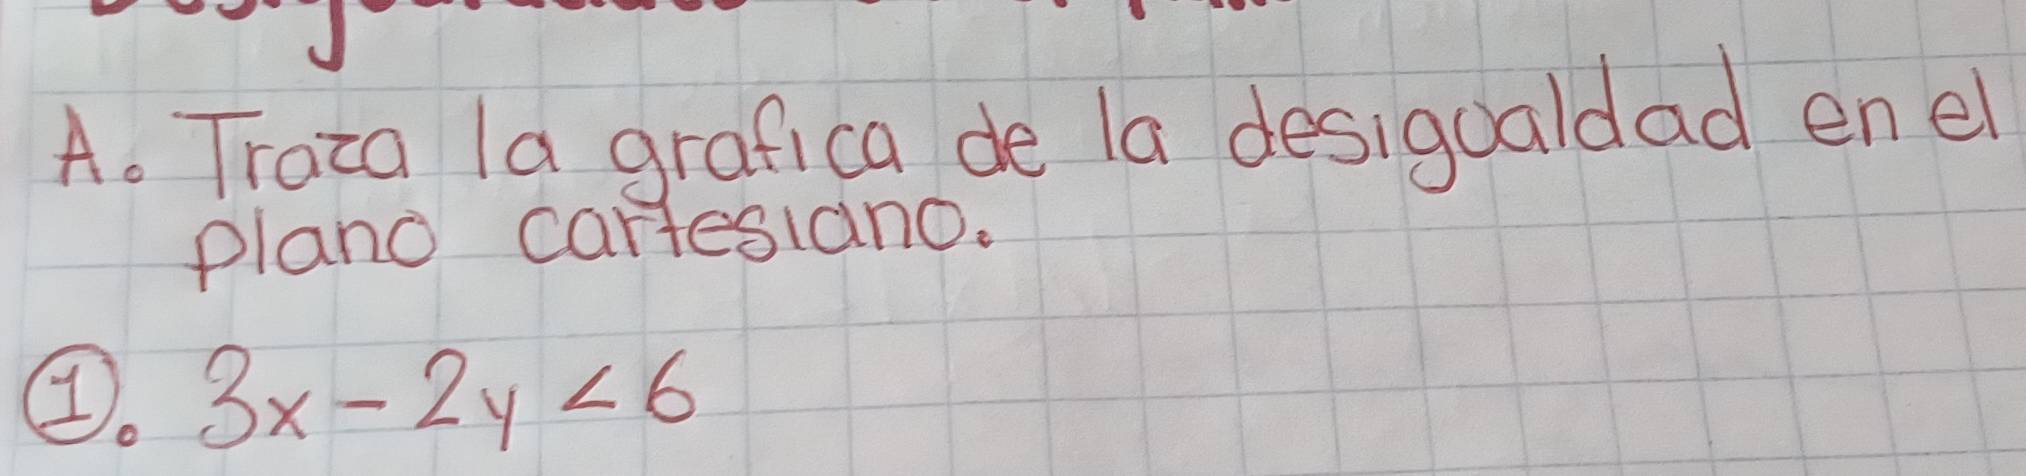 A. Traza la grafica de la desigualdad en el
plano cartesiano.
①. 3x - 2y < 6